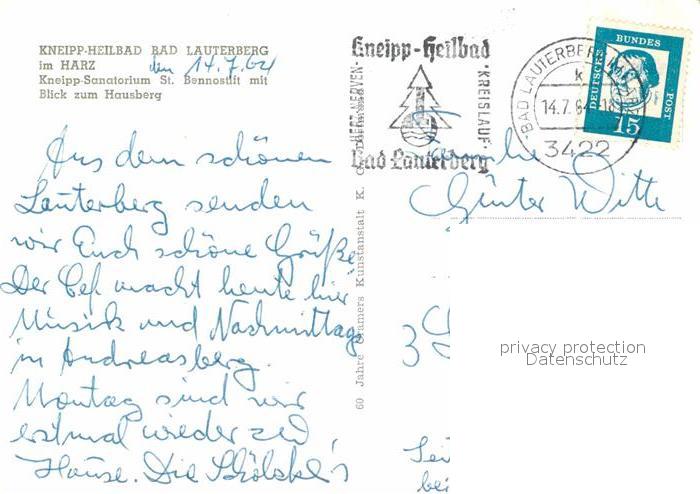 KNEIPP-HEILBAD BAD LAUTERBERG
im HARZ
den 14.7.64
Kneipp-Sanatorium St. Bennostift mit
Blick zum Hausberg
Aus dem schönen
Lauterberg senden
wir Euch schöne Grüße
Der Cef macht heute hier
Musik und Nachmittags
in Andreasberg.
Montag sind wir
erstmal wieder zu
Hause. Die
60 Jahre Cramers Kunstanstalt K.
Kneipp-Heilbad
HERZ-NERVEN-
KREISLAUF
Bad Lauterberg
BAD LAUTERBERG IM HARZ
k
14.7.64-18
3422
DEUTSCHE
BUNDES
POST
15
Günter Witte
3
privacy protection
Datenschutz
bei